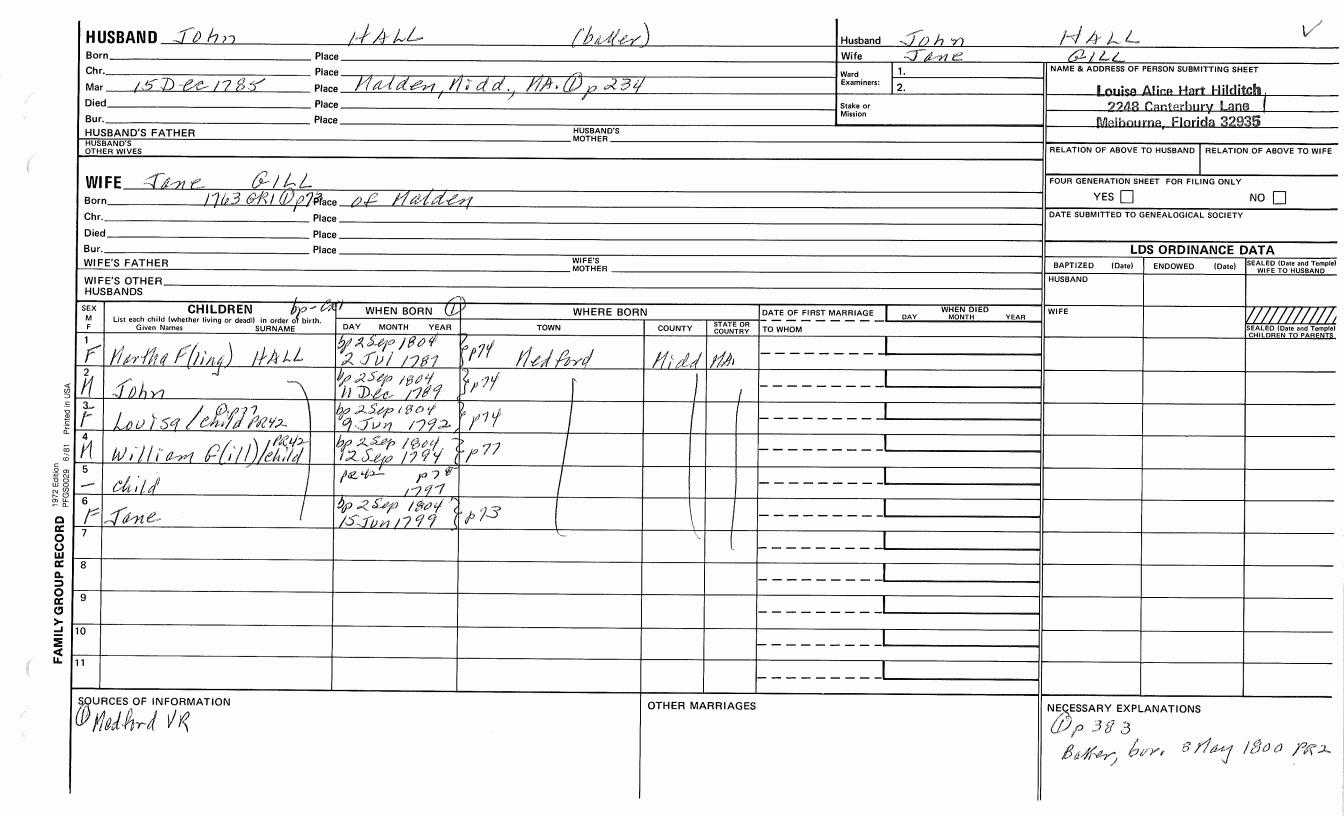 HUSBAND John HALL (baker)
Born Place
Chr. Place
Mar 15 Dec 1785 Place Malden, Midd., MA. ① p 234
Died Place
Bur. Place
HUSBAND'S FATHER HUSBAND'S MOTHER
HUSBAND'S OTHER WIVES
Husband John HALL ✓
Wife Jane GILL
Ward Examiners: 1.
2.
Stake or Mission
NAME & ADDRESS OF PERSON SUBMITTING SHEET
Louise Alice Hart Hilditch
2248 Canterbury Lane
Melbourne, Florida 32935
RELATION OF ABOVE TO HUSBAND RELATION OF ABOVE TO WIFE
FOUR GENERATION SHEET FOR FILING ONLY
YES NO
DATE SUBMITTED TO GENEALOGICAL SOCIETY
WIFE Jane GILL
Born 1763 GR1 ① p73 Place of Malden
Chr. Place
Died Place
Bur. Place
WIFE'S FATHER WIFE'S MOTHER
WIFE'S OTHER HUSBANDS
LDS ORDINANCE DATA
BAPTIZED (Date) ENDOWED (Date) SEALED (Date and Temple) WIFE TO HUSBAND
HUSBAND
WIFE
SEALED (Date and Temple) CHILDREN TO PARENTS
SEX M F
CHILDREN bp-
List each child (whether living or dead) in order of birth.
Given Names SURNAME
WHEN BORN ①
DAY MONTH YEAR
WHERE BORN
TOWN COUNTY STATE OR COUNTRY
DATE OF FIRST MARRIAGE
TO WHOM
WHEN DIED
DAY MONTH YEAR
1 bp 2 Sep 1804
F Martha F(ling) HALL 2 Jul 1787 p74 Medford Midd MA.
2 bp 2 Sep 1804
M John 11 Dec 1789 p74
3 ① p77 bp 2 Sep 1804
F Louisa/child PR42 9 Jun 1792 p74
4 PR42 bp 2 Sep 1804
M William G(ill)/child 12 Sep 1794 p77
5 PR42 p78
— child 1797
6 bp 2 Sep 1804
F Jane 15 Jun 1799 p73
7
8
9
10
11
SOURCES OF INFORMATION
① Medford VR
OTHER MARRIAGES
NECESSARY EXPLANATIONS
① p 383
Baker, bur. 3 May 1800 PR2
FAMILY GROUP RECORD 1972 Edition PFGS0029 6/81 Printed in USA